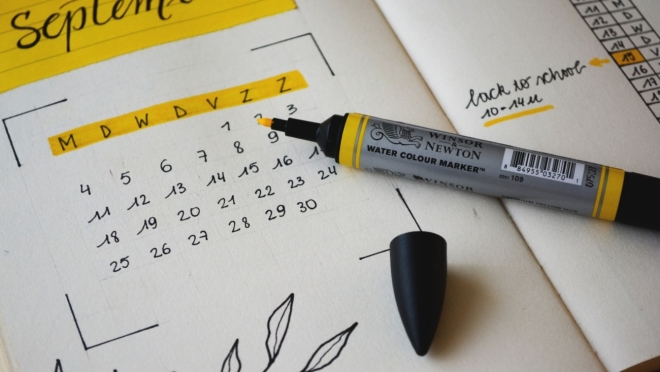 Septem
M D W D V Z Z
1 2 3
4 5 6 7 8 9
11 12 13 14 15 16 1
18 19 20 21 22 23 24
25 26 27 28 29 30
WINSOR
&
NEWTON
WATER COLOUR MARKER™
WINSOR
109
84955 03270
back to school
10-14u
11 M
12 D
13 W
14 D
15 V
16
17